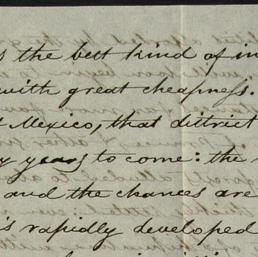 s the best kind of in
with great cheapness.
Mexico, that district
years to come: the
and the chances are
is rapidly developed